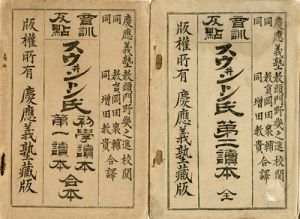 慶應義塾教頭門野幾之進校閲
同 教員岡田輔
同 同 増田
合譯
音訓
反點
スウ井ントン氏
第二讀本
全
版權所有 慶應義塾藏版
慶應義塾教頭門野幾之進校閲
同 教員岡田輔
同 同 増田
合譯
音訓
反點
スウ井ントン氏
初學讀本
第一讀本
合本
版權所有 慶應義塾藏版